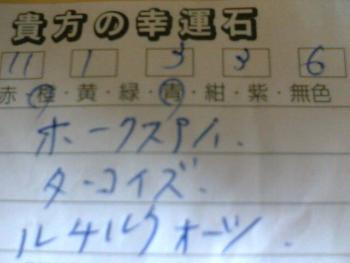 貴方の幸運石
11 1 3 3 6
赤・橙・黄・緑・青・紺・紫・無色
ホークスアイ.
ターコイズ.
ルチルクォーツ.